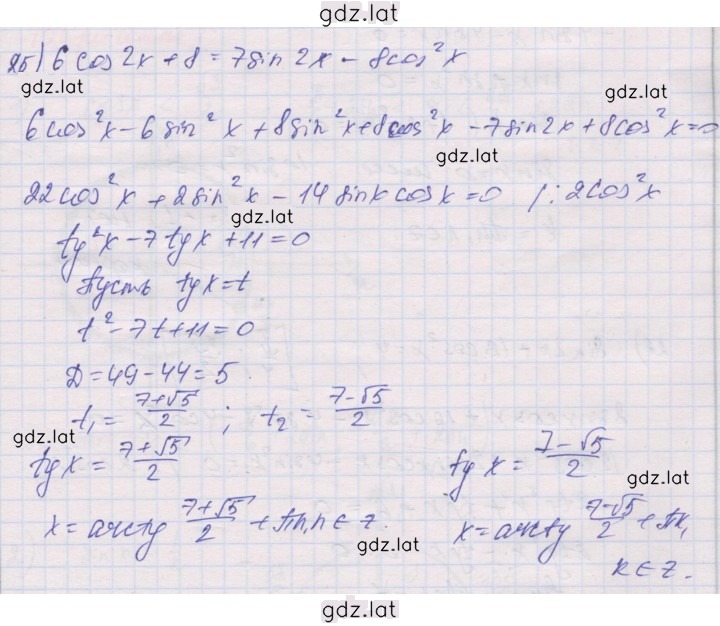 gdz.lat
25) 6 cos 2x + 8 = 7 sin 2x - 8cos²x
gdz.lat
gdz.lat
6cos²x - 6 sin²x + 8sin²x + 8cos²x - 7sin2x + 8cos²x = 0
gdz.lat
22cos²x + 2sin²x - 14 sinx cosx = 0 /: 2cos²x
gdz.lat
tg²x - 7tgx + 11 = 0
Пусть tgx = t
t² - 7t + 11 = 0
D = 49 - 44 = 5
t₁ = (7+√5)/2 ; t₂ = (7-√5)/2
gdz.lat
tg x = (7+√5)/2 tg x = (7-√5)/2
gdz.lat
x = arctg (7+√5)/2 + πn, n ∈ z. x = arctg (7-√5)/2 + πk,
gdz.lat
k ∈ z.
gdz.lat